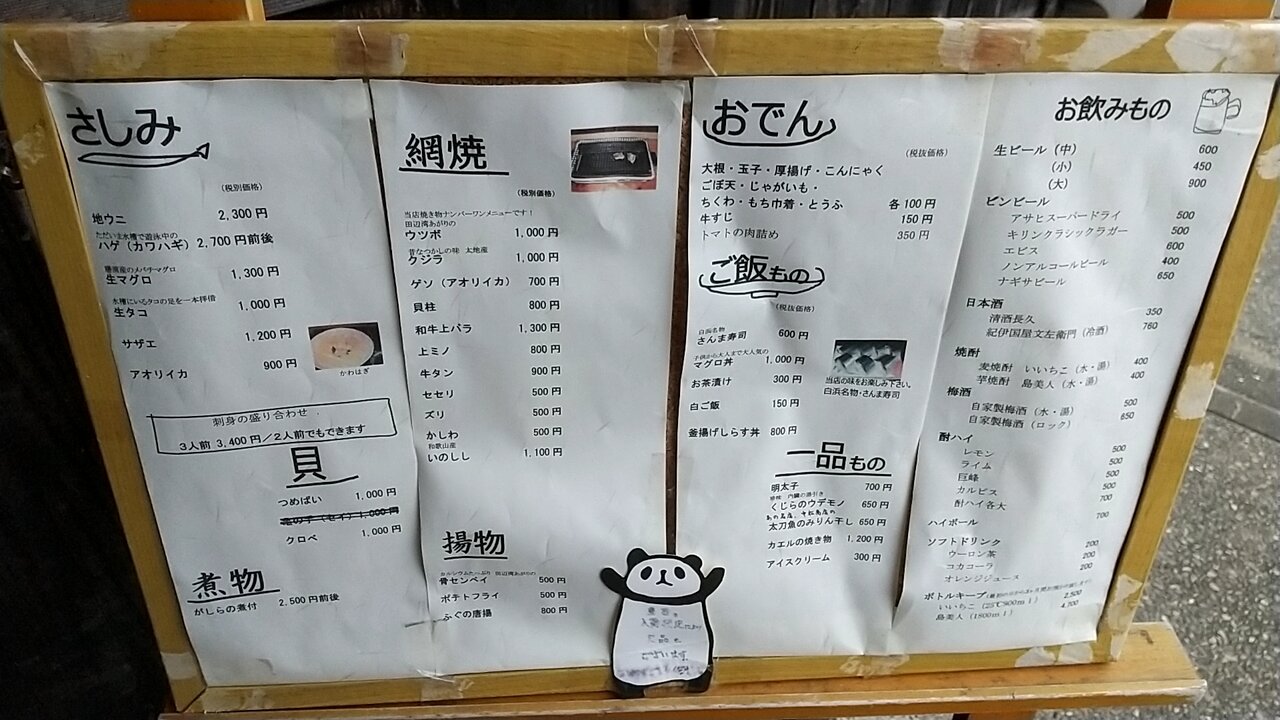 さしみ
(税別価格)
地ウニ 2,300円
ただいま水槽で遊泳中の
ハゲ(カワハギ) 2,700円前後
勝浦産のメバチマグロ
生マグロ 1,300円
水槽にいるタコの足を一本拝借
生タコ 1,000円
サザエ 1,200円
アオリイカ 900円
かわはぎ
刺身の盛り合わせ
3人前 3,400円/2人前でもできます
貝
つめばい 1,000円
亀の手(セイ) 1,000円
クロベ 1,000円
煮物
がしらの煮付 2,500円前後
網焼
(税別価格)
当店焼き物ナンバーワンメニューです!
田辺湾あがりの
ウツボ 1,000円
昔なつかしの味 太地産
クジラ 1,000円
ゲソ(アオリイカ) 700円
貝柱 800円
和牛上バラ 1,300円
上ミノ 800円
牛タン 900円
セセリ 500円
ズリ 500円
かしわ 500円
和歌山産
いのしし 1,100円
揚物
カルシウムたーっぷり 田辺湾あがりの
骨センベイ 500円
ポテトフライ 500円
ふぐの唐揚 800円
おでん
(税抜価格)
大根・玉子・厚揚げ・こんにゃく
ごぼ天・じゃがいも・
ちくわ・もち巾着・とうふ 各100円
牛すじ 150円
トマトの肉詰め 350円
ご飯もの
(税抜価格)
白浜名物
さんま寿司 600円
子供から大人まで大人気の
マグロ丼 1,000円
お茶漬け 300円
白ご飯 150円
釜揚げしらす丼 800円
当店の味をお楽しみ下さい。
白浜名物・さんま寿司
一品もの
明太子 700円
珍味 内臓の湯引き
くじらのウデモノ 650円
太刀魚のみりん干し 650円
カエルの焼き物 1,200円
アイスクリーム 300円
お飲みもの
生ビール(中) 600
(小) 450
(大) 900
ビンビール
アサヒスーパードライ 500
キリンクラシックラガー 500
エビス 600
ノンアルコールビール 400
ナギサビール 650
日本酒
清酒長久 350
紀伊国屋文左衛門(冷酒) 760
焼酎
麦焼酎 いいちこ(水・湯) 400
芋焼酎 島美人(水・湯) 400
梅酒
自家製梅酒(水・湯) 500
自家製梅酒(ロック) 650
酎ハイ
レモン 500
ライム 500
巨峰 500
カルピス 500
酎ハイ各大 700
ハイボール 700
ソフトドリンク
ウーロン茶 200
コカコーラ 200
オレンジジュース 200
ボトルキープ
いいちこ(25℃900ml) 2,500
島美人(1800ml) 4,700
欠品も
ございます。